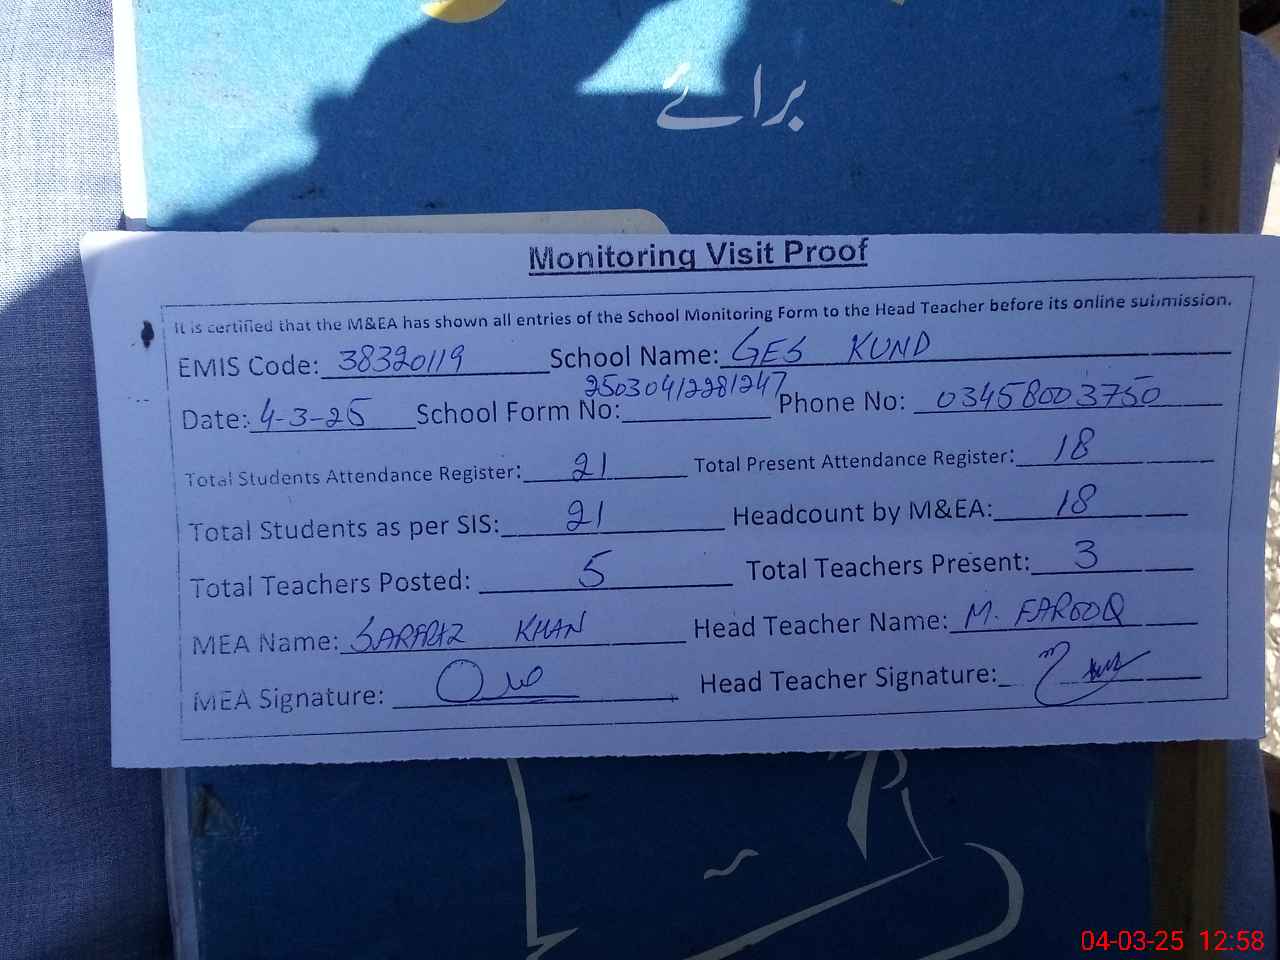 برائے
Monitoring Visit Proof
It is certified that the M&EA has shown all entries of the School Monitoring Form to the Head Teacher before its online submission.
EMIS Code: 38320119 School Name: GES KUND
Date: 4-3-25 School Form No: 25030412281247 Phone No: 03458003750
Total Students Attendance Register: 21 Total Present Attendance Register: 18
Total Students as per SIS: 21 Headcount by M&EA: 18
Total Teachers Posted: 5 Total Teachers Present: 3
MEA Name: SARFRAZ KHAN Head Teacher Name: M. FAROOQ
MEA Signature: Head Teacher Signature:
04-03-25 12:58